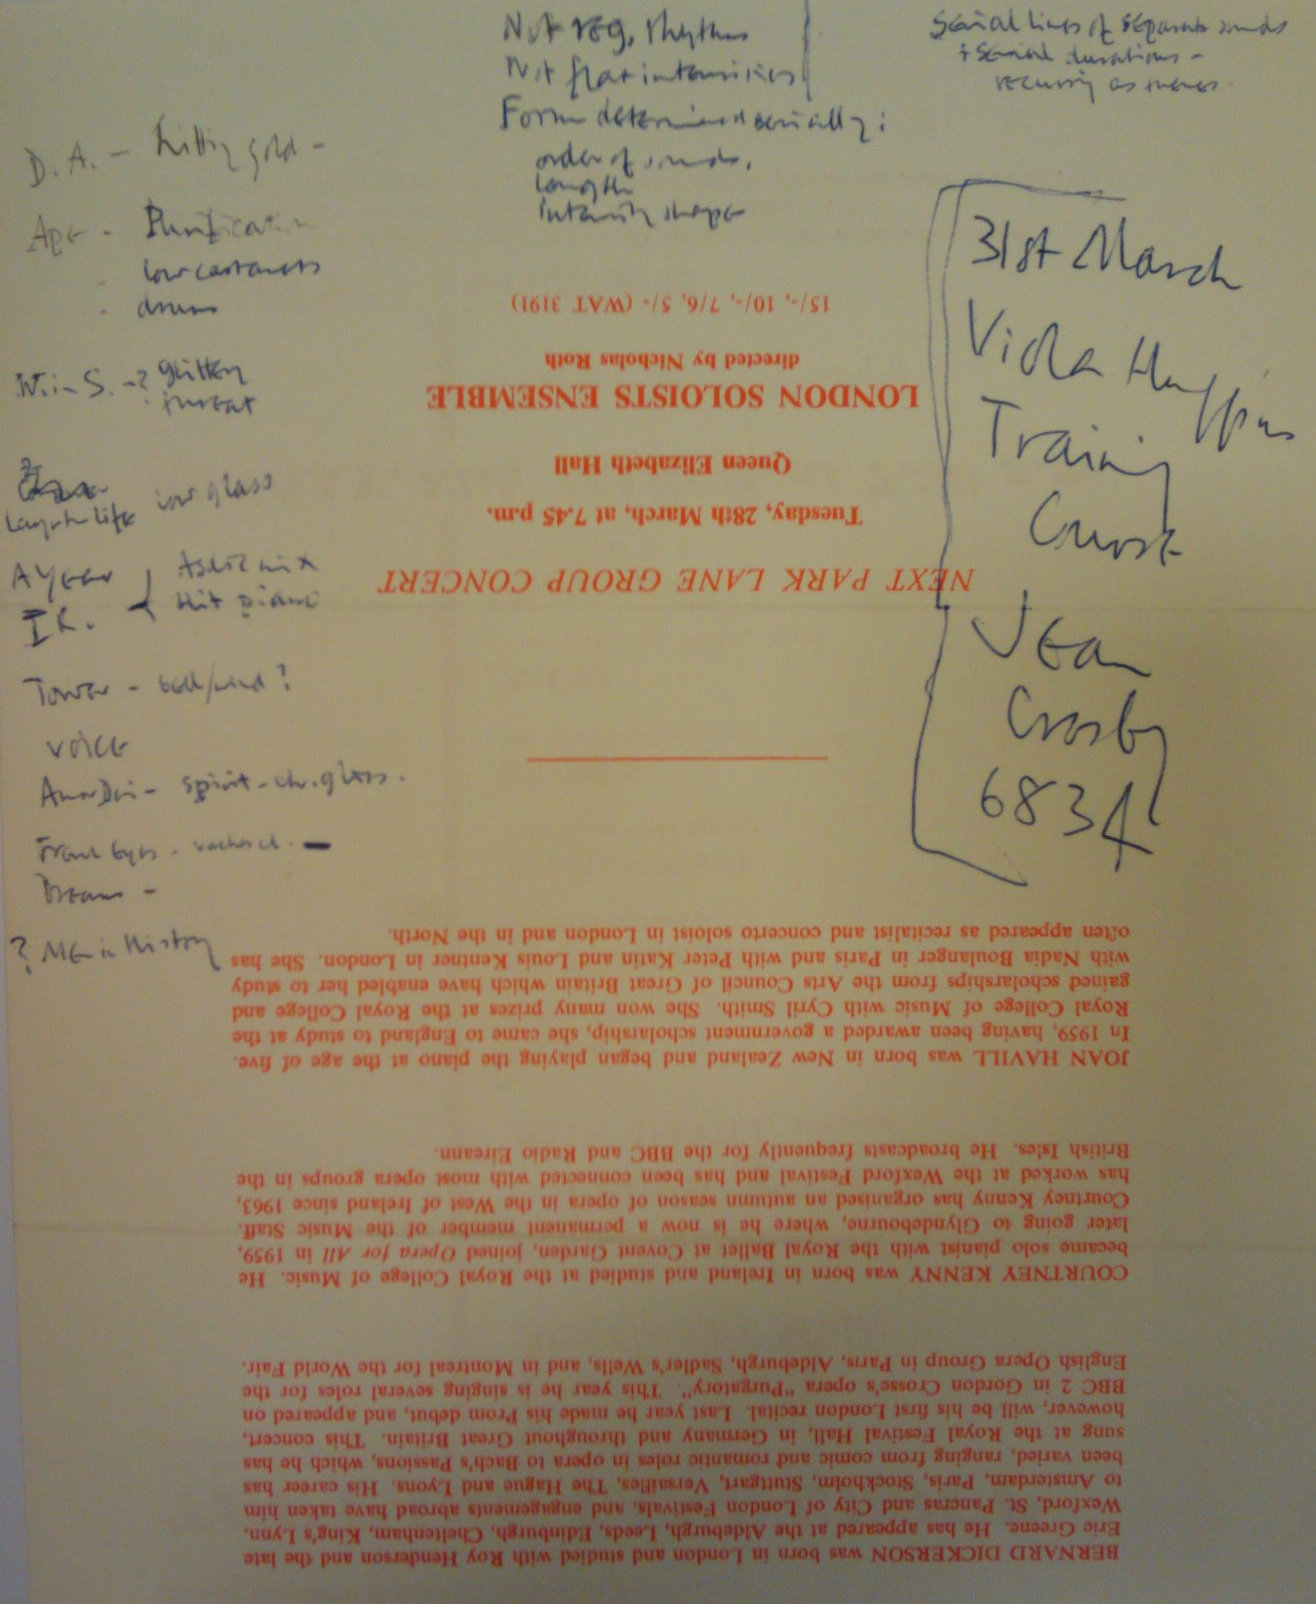 Not reg. rhythms
Not flat intensities
Form determined serially:
order of sounds,
length
intensity shape
Serial lines of separate sounds
+ serial durations -
recurring as themes
D. A. - hitting gold -
Age - Purification
low castanets
- drums
W. in S. - ?
threat
low glass
A Year
Hit piano
Tower - bell/wind ?
Voice
spirit - ch. glass.
Dream -
? Me in History
31st March
Viola Huggins
Training
Course
Jean
Crosby
6834
15/-, 10/-, 7/6, 5/- (WAT 3191)
directed by Nicholas Roth
LONDON SOLOISTS ENSEMBLE
Queen Elizabeth Hall
Tuesday, 28th March, at 7.45 p.m.
NEXT PARK LANE GROUP CONCERT
often appeared as recitalist and concerto soloist in London and in the North.
with Nadia Boulanger in Paris and with Peter Katin and Louis Kentner in London. She has
gained scholarships from the Arts Council of Great Britain which have enabled her to study
Royal College of Music with Cyril Smith. She won many prizes at the Royal College and
In 1959, having been awarded a government scholarship, she came to England to study at the
JOAN HAVILL was born in New Zealand and began playing the piano at the age of five.
British Isles. He broadcasts frequently for the BBC and Radio Eireann.
has worked at the Wexford Festival and has been connected with most opera groups in the
Courtney Kenny has organised an autumn season of opera in the West of Ireland since 1963,
later going to Glyndebourne, where he is now a permanent member of the Music Staff.
became solo pianist with the Royal Ballet at Covent Garden, joined Opera for All in 1959,
COURTNEY KENNY was born in Ireland and studied at the Royal College of Music. He
English Opera Group in Paris, Aldeburgh, Sadler's Wells, and in Montreal for the World Fair.
BBC 2 in Gordon Crosse's opera "Purgatory". This year he is singing several roles for the
however, will be his first London recital. Last year he made his Prom debut, and appeared on
sung at the Royal Festival Hall, in Germany and throughout Great Britain. This concert,
been varied, ranging from comic and romantic roles in opera to Bach's Passions, which he has
to Amsterdam, Paris, Stockholm, Stuttgart, Versailles, The Hague and Lyons. His career has
Wexford, St. Pancras and City of London Festivals, and engagements abroad have taken him
Eric Greene. He has appeared at the Aldeburgh, Leeds, Edinburgh, Cheltenham, King's Lynn,
BERNARD DICKERSON was born in London and studied with Roy Henderson and the late